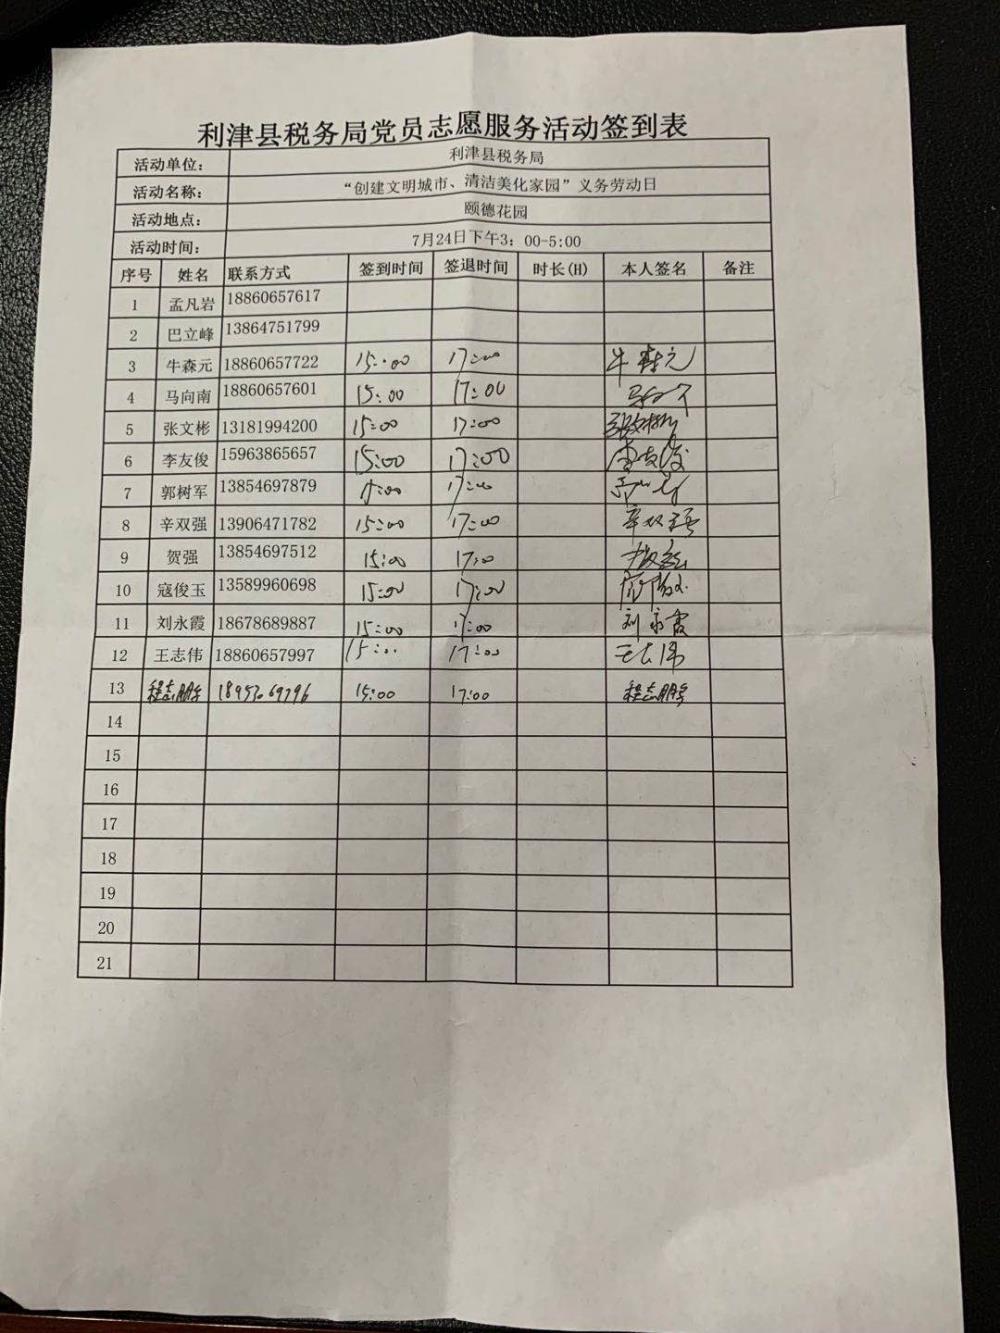 利津县税务局党员志愿服务活动签到表
活动单位： 利津县税务局
活动名称： “创建文明城市、清洁美化家园”义务劳动日
活动地点： 颐德花园
活动时间： 7月24日下午3：00-5:00
序号 姓名 联系方式 签到时间 签退时间 时长(H) 本人签名 备注
1 孟凡岩 18860657617
2 巴立峰 13864751799
3 牛森元 18860657722 15:00 17:00 牛森元
4 马向南 18860657601 15:00 17:00
5 张文彬 13181994200 15:00 17:00 张文彬
6 李友俊 15963865657 15:00 17:00 李友俊
7 郭树军 13854697879 15:00 17:00
8 辛双强 13906471782 15:00 17:00 辛双强
9 贺强 13854697512 15:00 17:00
10 寇俊玉 13589960698 15:00 17:00
11 刘永霞 18678689887 15:00 17:00 刘永霞
12 王志伟 18860657997 15:00 17:00 王志伟
13 程志鹏 15:00 17:00 程志鹏
14
15
16
17
18
19
20
21